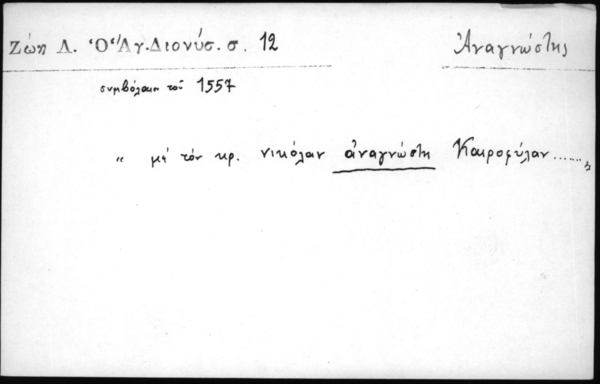 Ζώη Λ. Ὁ Ἅγ. Διονύσ. σ. 12 Ἀναγνώστης
συμβόλαιο τοῦ 1557
" μὲ τὸν κρ. νικόλαν ἀναγνώστη Καιροφύλαν ......."